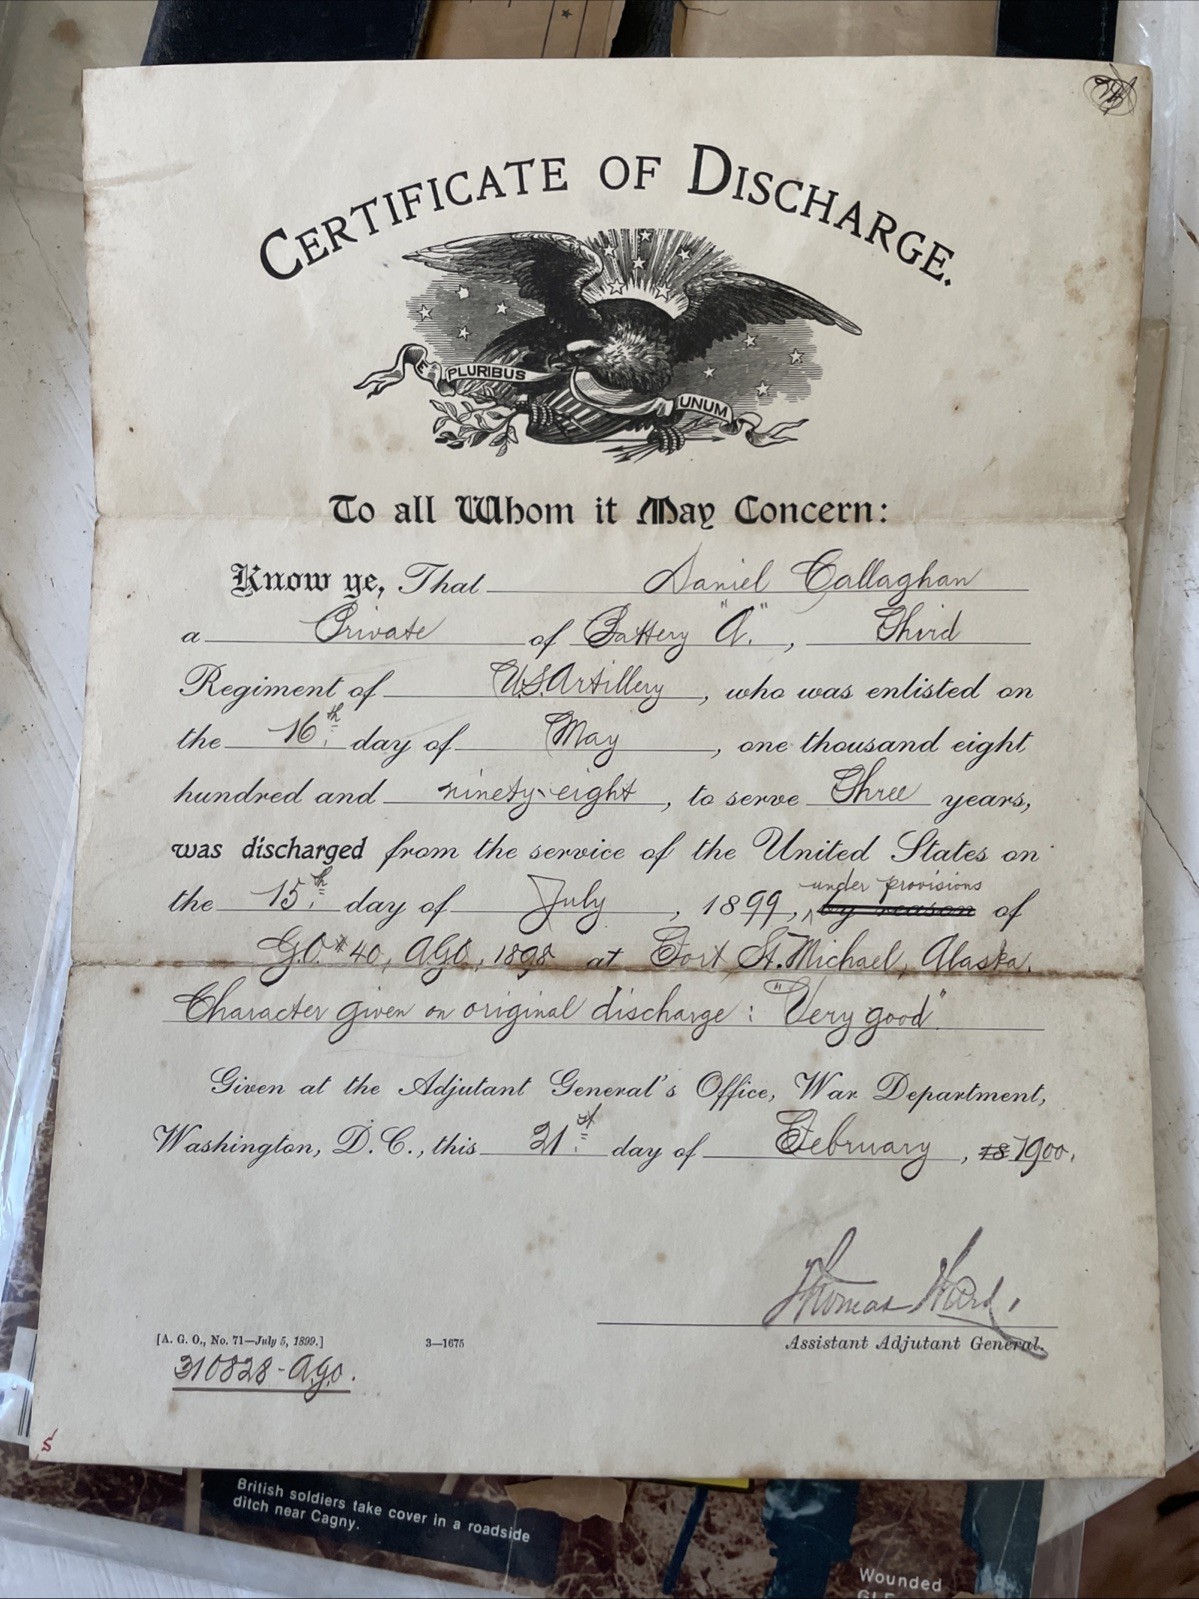 CERTIFICATE OF DISCHARGE.
E PLURIBUS UNUM
To all Whom it May Concern:
Know ye, That Daniel Callaghan
a Private of Battery "A.", Third
Regiment of U.S. Artillery, who was enlisted on
the 16th day of May, one thousand eight
hundred and ninety-eight, to serve Three years,
was discharged from the service of the United States on
under provisions
the 15th day of July, 1899, by reason of
G.O. #40, AGO, 1898 at Fort St. Michael, Alaska.
Character given on original discharge: "Very good"
Given at the Adjutant General's Office, War Department,
Washington, D.C., this 21st day of February, 18 1900.
Thomas Ward.
Assistant Adjutant General.
[A. G. O., No. 71—July 5, 1899.] 3—1675
310828-A.G.O.
S
British soldiers take cover in a roadside
ditch near Cagny.
Wounded